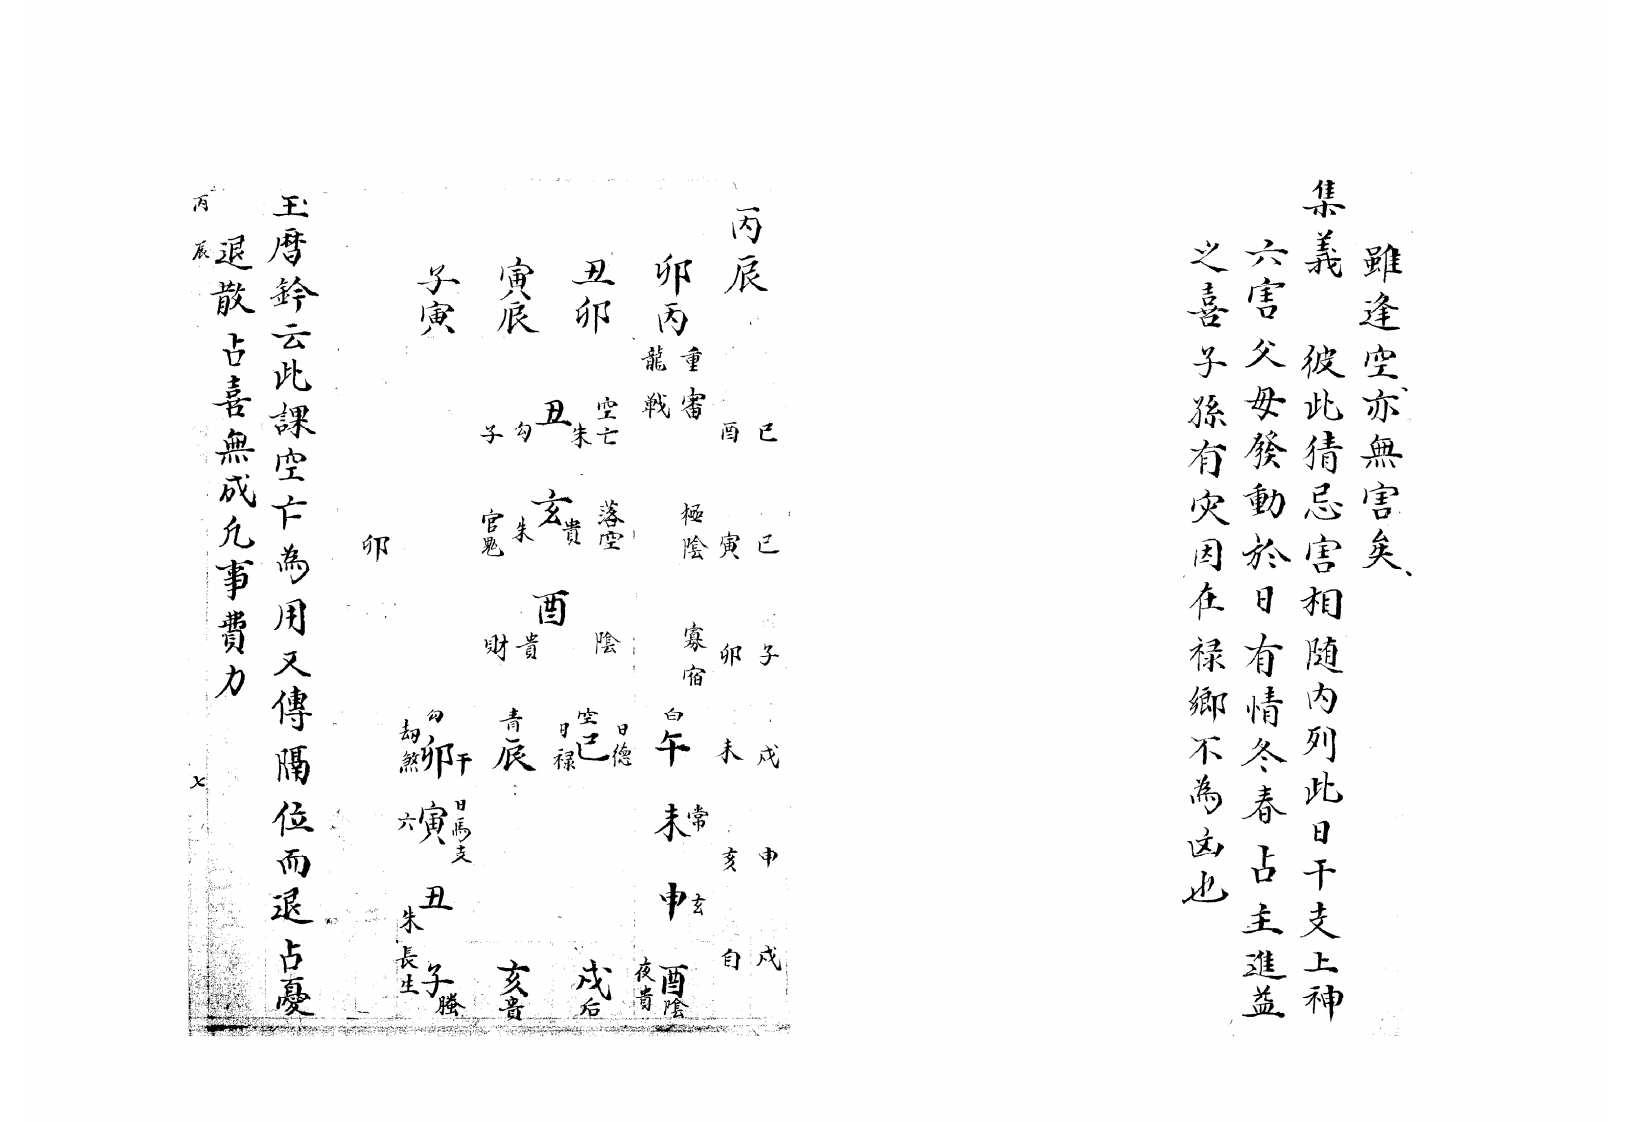 雖逢空亦無害矣
集義　彼此猜忌害相随内列此日干支上神
六害父母發動於日有情冬春占主進益
之喜子孫有灾因在禄鄉不為凶也
丙辰
巳　巳　子　戌　申　戌
酉　寅　卯　未　亥　自
卯丙　丑卯　寅辰　子寅
重審
龍戰
極陰
寡宿
空亡　朱　丑　勾　子
落空　貴　亥　朱　官鬼
陰　酉　貴　財
白午　日德　空巳　日禄　青辰　勾卯　干　劫煞
未常　日馬　支　寅六
申玄　丑朱
酉陰　夜貴　戌后　亥貴　子螣　長生
卯
玉曆鈐云此課空亡為用又傳隔位而退占憂
退散占喜無成凡事費力
丙辰　七